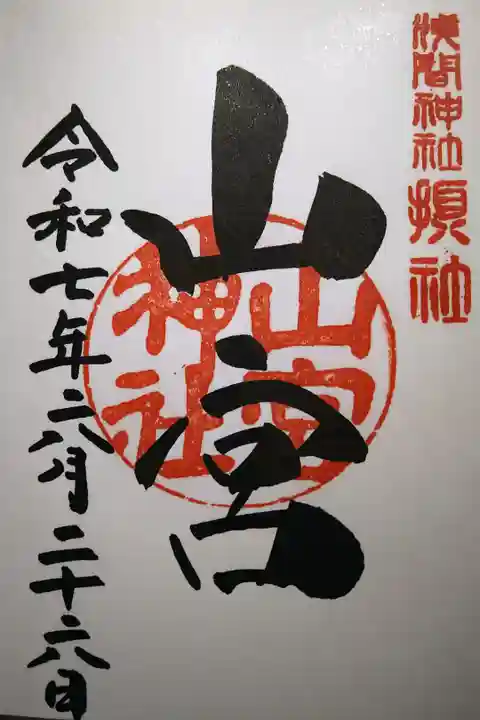 浅間神社摂社
山宮
山宮神社
令和七年二八月二十六日